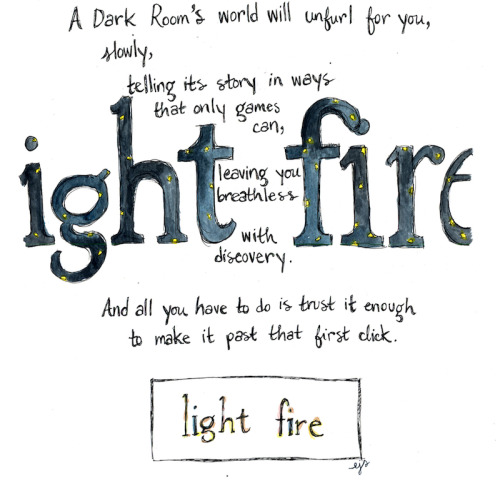 A Dark Room's world will unfurl for you,
slowly,
telling its story in ways
that only games
can,
ight fire
leaving you
breathless
with
discovery.
And all you have to do is trust it enough
to make it past that first click.
light fire